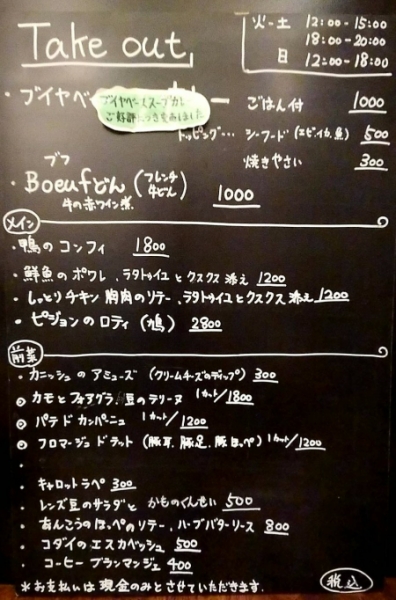 Take out
火-土 12:00-15:00
18:00-20:00
日 12:00-18:00
・ブイヤベ
ブイヤベーススープカレー
ご好評につき
ー ごはん付 1000
トッピング… シーフード(エビ、イカ、魚) 500
焼きやさい 300
ブフ
・Boeufどん (フレンチ牛どん) 1000
牛の赤ワイン煮
メイン
・鴨のコンフィ 1800
・鮮魚のポワレ、ラタトゥイユとクスクス添え 1200
・しっとりチキン胸肉のソテー、ラタトゥイユとクスクス添え 1200
・ピジョンのロティ(鳩) 2800
前菜
・カニッシュのアミューズ(クリームチーズのディップ) 300
カモとフォアグラ、豆のテリーヌ 1カット/1800
パテドカンパーニュ 1カット/1200
フロマージュドテット(豚耳、豚足、豚ほっぺ) 1カット/1200
・
・キャロットラペ 300
・レンズ豆のサラダとかものくんせい 500
・あんこうのほっぺのソテー、ハーブバターソース 800
・コダイのエスカベッシュ 500
・コーヒーブランマンジェ 400
*お支払いは現金のみとさせていただきます。
税込